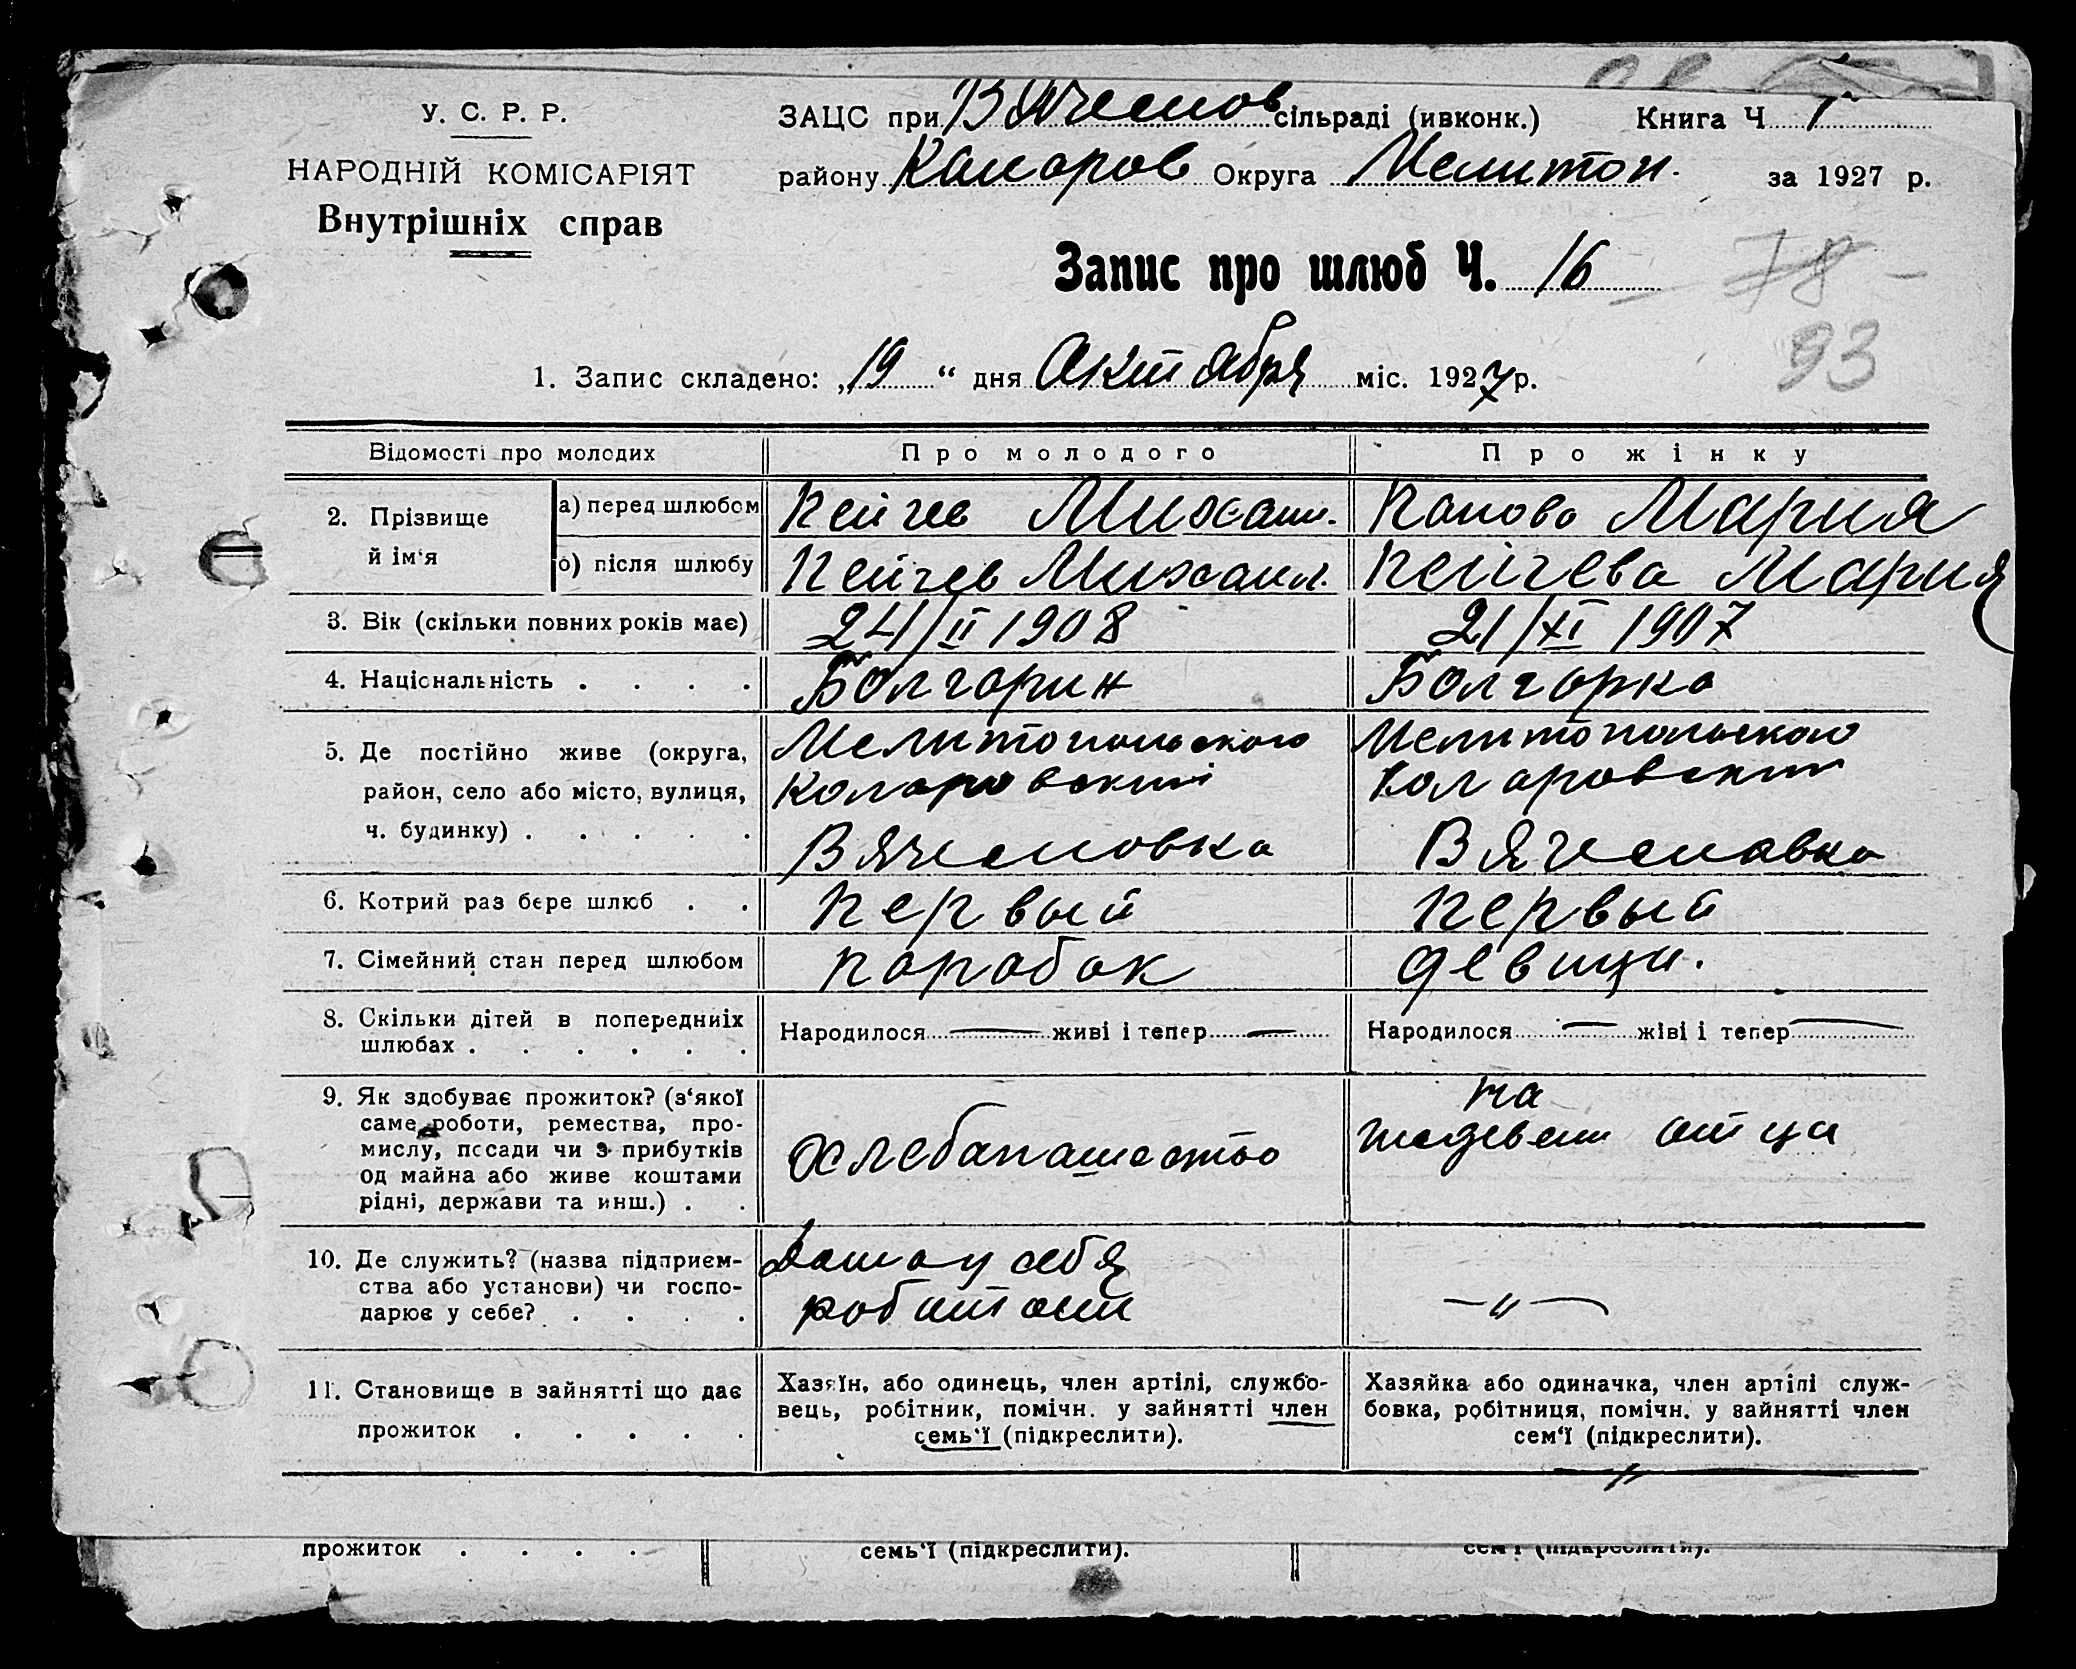 У. С. Р. Р.
НАРОДНІЙ КОМІСАРІЯТ
Внутрішніх справ
ЗАЦС при Вячеслов сільраді (ивконк.) Книга Ч I
району Коларов Округа Мелитоп. за 1927 р.
Запис про шлюб Ч. 16
78 -
93
1. Запис складено: „19“ дня Октября міс. 1927 р.
Відомості про молодих
Про молодого
Про жінку
2. Прізвище й ім'я
а) перед шлюбом
Пейчев Михаил.
Попова Мария
б) після шлюбу
Пейчев Михаил.
Пейчева Мария
3. Вік (скільки повних років має)
24/II 1908
21/XI 1907
4. Національність . . . .
Болгарин
Болгарка
5. Де постійно живе (округа,
район, село або місто, вулиця,
ч. будинку) . . . . .
Мелитопольского
Коларовский
Вячесловка
Мелитопольского
Коларовский
Вячеславка
6. Котрий раз бере шлюб . .
Первый
Первый
7. Сімейний стан перед шлюбом
поробок
девици.
8. Скільки дітей в попередниіх
шлюбах . . . . . .
Народилося — живі і тепер —
Народилося — жіві і тепер —
9. Як здобуває прожиток? (з'якої
саме роботи, ремества, про-
мислу, посади чи з прибутків
од майна або живе коштами
рідні, держави та инш.) . .
хлебапашество
на
отца
10. Де служить? (назва підприєм-
ства або установи) чи госпо-
дарює у себе? . . . .
Дома у себя
работает
—〃—
11. Становище в зайнятті що дає
прожиток . . . . .
Хазяїн, або одинець, член артілі, службо-
вець, робітник, помічн. у зайнятті член
семь'ї (підкреслити).
Хазяйка або одиначка, член артілі служ-
бовка, робітниця, помічн. у зайнятті член
сем'ї (підкреслити).
〃
прожиток . . . .
семь'ї (підкреслити).
сем'ї (підкреслити).